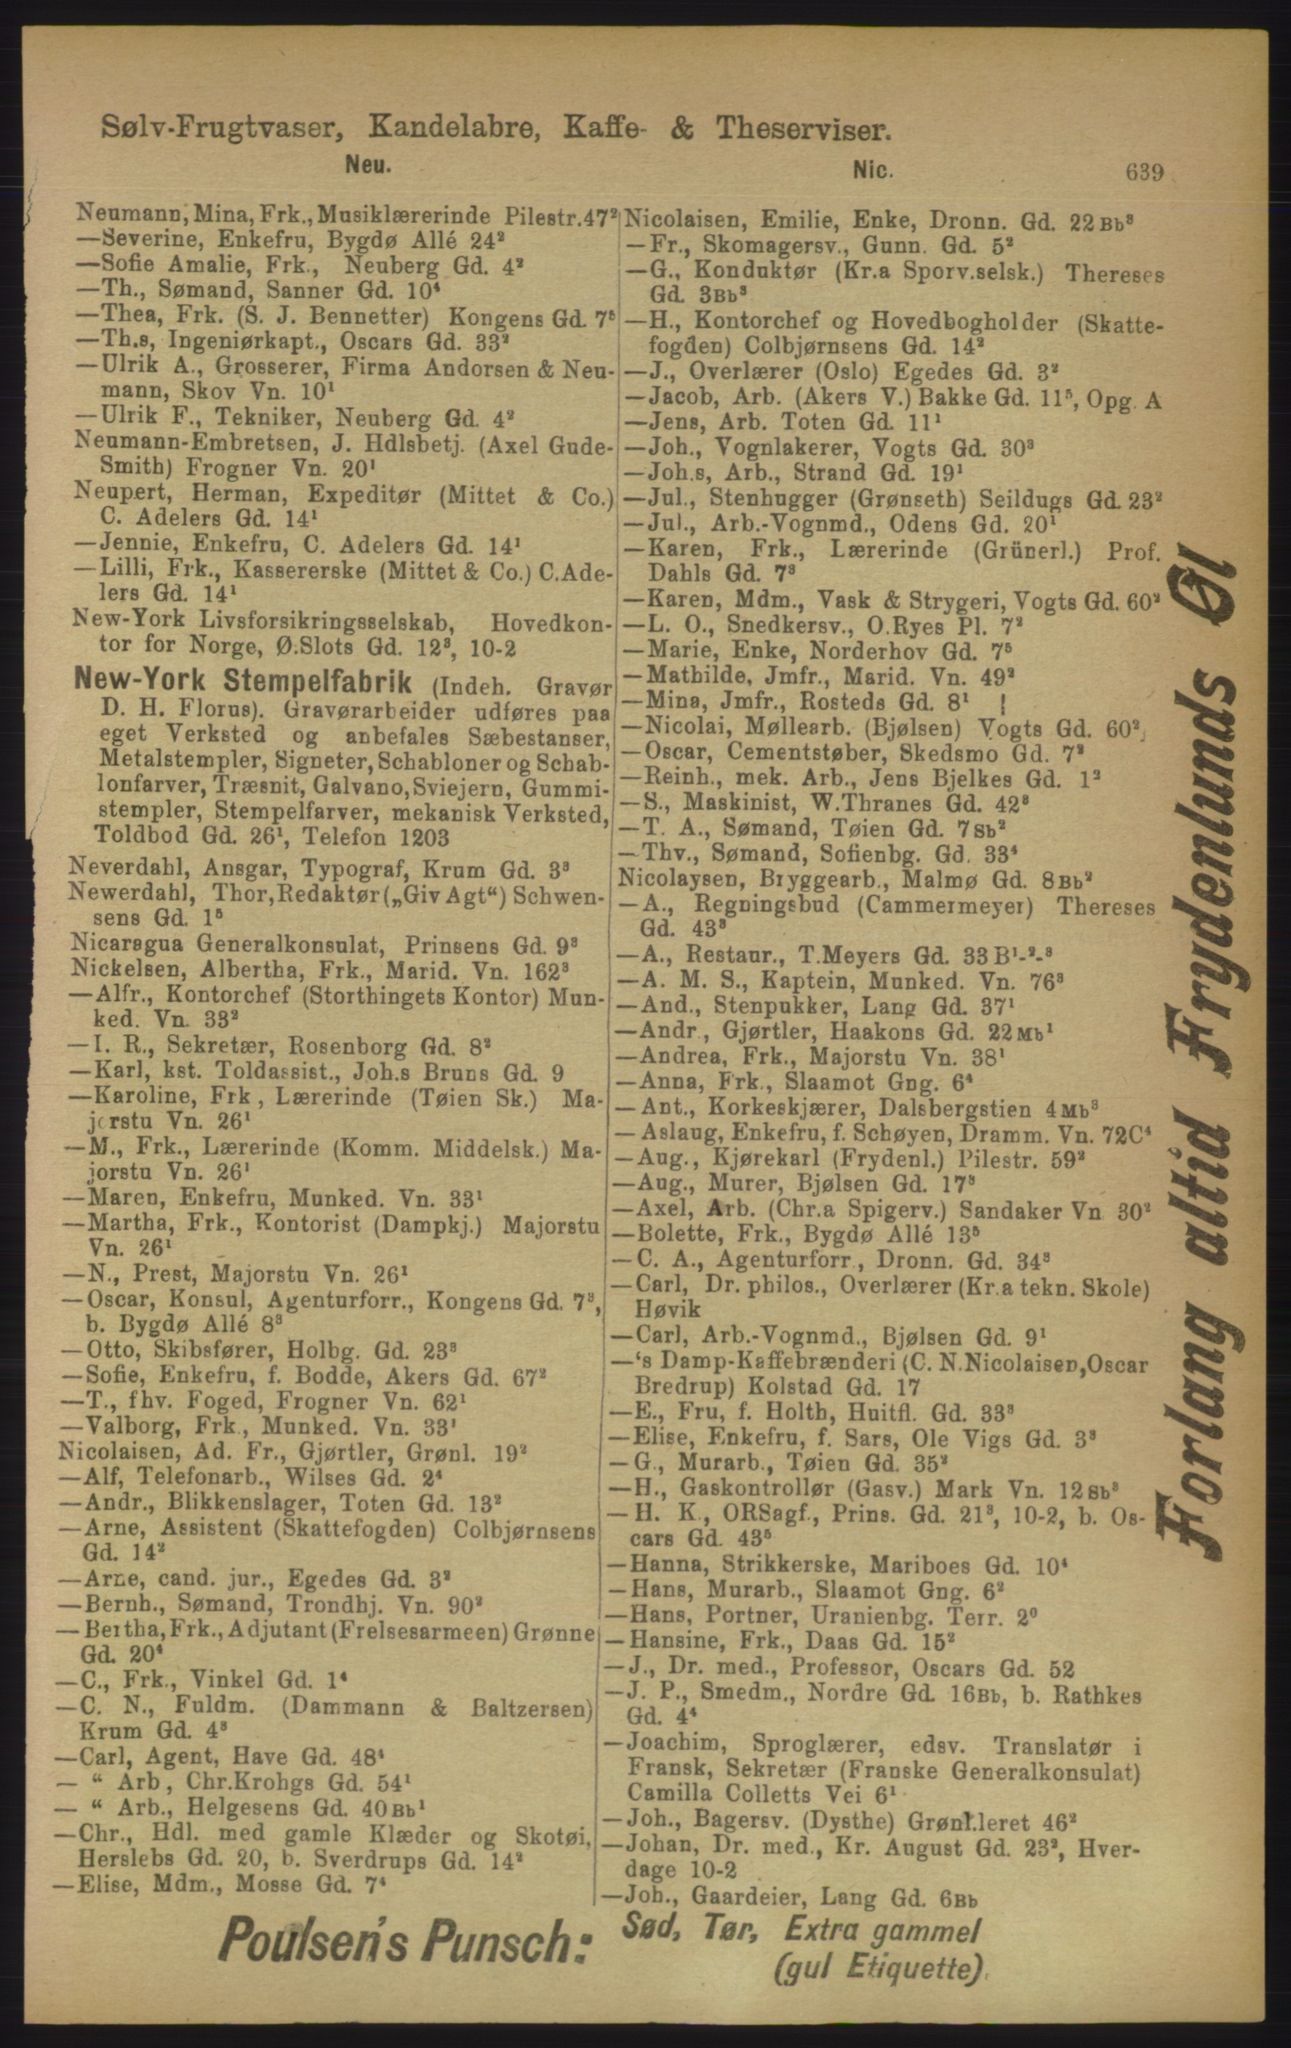 Sølv-Frugtvaser, Kandelabre, Kaffe- & Theserviser.
Neu.
Nic.
639
Neumann, Mina, Frk., Musiklærerinde Pilestr. 47²
—Severine, Enkefru, Bygdø Allé 24²
—Sofie Amalie, Frk., Neuberg Gd. 4²
—Th., Sømand, Sanner Gd. 10⁴
—Thea, Frk. (S. J. Bennetter) Kongens Gd. 7⁵
—Th.s, Ingeniørkapt., Oscars Gd. 33²
—Ulrik A., Grosserer, Firma Andorsen & Neu-
mann, Skov Vn. 10¹
—Ulrik F., Tekniker, Neuberg Gd. 4²
Neumann-Embretsen, J. Hdlsbetj. (Axel Gude-
Smith) Frogner Vn. 20¹
Neupert, Herman, Expeditør (Mittet & Co.)
C. Adelers Gd. 14¹
—Jennie, Enkefru, C. Adelers Gd. 14¹
—Lilli, Frk., Kassererske (Mittet & Co.) C. Ade-
lers Gd. 14¹
New-York Livsforsikringsselskab, Hovedkon-
tor for Norge, Ø. Slots Gd. 12³, 10-2
New-York Stempelfabrik (Indeh. Gravør
D. H. Florus). Gravørarbeider udføres paa
eget Verksted og anbefales Sæbestanser,
Metalstempler, Signeter, Schabloner og Schab-
lonfarver, Træsnit, Galvano, Sviejern, Gummi-
stempler, Stempelfarver, mekanisk Verksted,
Toldbod Gd. 26¹, Telefon 1203
Neverdahl, Ansgar, Typograf, Krum Gd. 3³
Newerdahl, Thor, Redaktør („Giv Agt“) Schwen-
sens Gd. 1⁵
Nicaragua Generalkonsulat, Prinsens Gd. 9³
Nickelsen, Albertha, Frk., Marid. Vn. 162³
—Alfr., Kontorchef (Storthingets Kontor) Mun-
ked. Vn. 33²
—I. R., Sekretær, Rosenborg Gd. 8²
—Karl, kst. Toldassist., Joh.s Bruns Gd. 9
—Karoline, Frk, Lærerinde (Tøien Sk.) Ma-
jorstu Vn. 26¹
—M., Frk., Lærerinde (Komm. Middelsk.) Ma-
jorstu Vn. 26¹
—Maren, Enkefru, Munked. Vn. 33¹
—Martha, Frk., Kontorist (Dampkj.) Majorstu
Vn. 26¹
—N., Prest, Majorstu Vn. 26¹
—Oscar, Konsul, Agenturforr., Kongens Gd. 7³,
b. Bygdø Allé 8³
—Otto, Skibsfører, Holbg. Gd. 23³
—Sofie, Enkefru, f. Bodde, Akers Gd. 67²
—T., fhv. Foged, Frogner Vn. 62¹
—Valborg, Frk., Munked. Vn. 33¹
Nicolaisen, Ad. Fr., Gjørtler, Grønl. 19²
—Alf, Telefonarb., Wilses Gd. 2⁴
—Andr., Blikkenslager, Toten Gd. 13²
—Arne, Assistent (Skattefogden) Colbjørnsens
Gd. 14²
—Arne, cand. jur., Egedes Gd. 3²
—Bernh., Sømand, Trondhj. Vn. 90²
—Bertha, Frk., Adjutant (Frelsesarmeen) Grønne
Gd. 20⁴
—C., Frk., Vinkel Gd. 1⁴
—C. N., Fuldm. (Dammann & Baltzersen)
Krum Gd. 4³
—Carl, Agent, Have Gd. 48⁴
— “ Arb, Chr. Krohgs Gd. 54¹
— “ Arb., Helgesens Gd. 40Bb¹
—Chr., Hdl. med gamle Klæder og Skotøi,
Herslebs Gd. 20, b. Sverdrups Gd. 14²
—Elise, Mdm., Mosse Gd. 7⁴
Nicolaisen, Emilie, Enke, Dronn. Gd. 22Bb³
—Fr., Skomagersv., Gunn. Gd. 5²
—G., Konduktør (Kr.a Sporv.selsk.) Thereses
Gd. 3Bb³
—H., Kontorchef og Hovedbogholder (Skatte-
fogden) Colbjørnsens Gd. 14²
—J., Overlærer (Oslo) Egedes Gd. 3²
—Jacob, Arb. (Akers V.) Bakke Gd. 11⁵, Opg. A
—Jens, Arb. Toten Gd. 11¹
—Joh., Vognlakerer, Vogts Gd. 30³
—Joh.s, Arb., Strand Gd. 19¹
—Jul., Stenhugger (Grønseth) Seildugs Gd. 23²
—Jul., Arb.-Vognmd., Odens Gd. 20¹
—Karen, Frk., Lærerinde (Grünerl.) Prof.
Dahls Gd. 7³
—Karen, Mdm., Vask & Strygeri, Vogts Gd. 60²
—L. O., Snedkersv., O. Ryes Pl. 7²
—Marie, Enke, Norderhov Gd. 7⁵
—Mathilde, Jmfr., Marid. Vn. 49²
—Mina, Jmfr., Rosteds Gd. 8¹
—Nicolai, Møllearb. (Bjølsen) Vogts Gd. 60²
—Oscar, Cementstøber, Skedsmo Gd. 7²
—Reinh., mek. Arb., Jens Bjelkes Gd. 1²
—S., Maskinist, W. Thranes Gd. 42³
—T. A., Sømand, Tøien Gd. 7Sb²
—Thv., Sømand, Sofienbg. Gd. 33⁴
Nicolaysen, Bryggearb., Malmø Gd. 8Bb²
—A., Regningsbud (Cammermeyer) Thereses
Gd. 43³
—A., Restaur., T. Meyers Gd. 33 B¹-²-³
—A. M. S., Kaptein, Munked. Vn. 76³
—And., Stenpukker, Lang Gd. 37¹
—Andr., Gjørtler, Haakons Gd. 22Mb¹
—Andrea, Frk., Majorstu Vn. 38¹
—Anna, Frk., Slaamot Gng. 6⁴
—Ant., Korkeskjærer, Dalsbergstien 4Mb³
—Aslaug, Enkefru, f. Schøyen, Dramm. Vn. 72C⁴
—Aug., Kjørekarl (Frydenl.) Pilestr. 59²
—Aug., Murer, Bjølsen Gd. 17³
—Axel, Arb. (Chr.a Spigerv.) Sandaker Vn 30²
—Bolette, Frk., Bygdø Allé 13⁵
—C. A., Agenturforr., Dronn. Gd. 34³
—Carl, Dr. philos., Overlærer (Kr.a tekn. Skole)
Høvik
—Carl, Arb.-Vognmd., Bjølsen Gd. 9¹
—‘s Damp-Kaffebrænderi (C. N. Nicolaisen, Oscar
Bredrup) Kolstad Gd. 17
—E., Fru, f. Holth, Huitfl. Gd. 33³
—Elise, Enkefru, f. Sars, Ole Vigs Gd. 3³
—G., Murarb., Tøien Gd. 35²
—H., Gaskontrollør (Gasv.) Mark Vn. 12Sb³
—H. K., ORSagf., Prins. Gd. 21³, 10-2, b. Os-
cars Gd. 43⁵
—Hanna, Strikkerske, Mariboes Gd. 10⁴
—Hans, Murarb., Slaamot Gng. 6²
—Hans, Portner, Uranienbg. Terr. 2⁰
—Hansine, Frk., Daas Gd. 15²
—J., Dr. med., Professor, Oscars Gd. 52
—J. P., Smedm., Nordre Gd. 16Bb, b. Rathkes
Gd. 4⁴
—Joachim, Sproglærer, edsv. Translatør i
Fransk, Sekretær (Franske Generalkonsulat)
Camilla Colletts Vei 6¹
—Joh., Bagersv. (Dysthe) Grønl.leret 46²
—Johan, Dr. med., Kr. August Gd. 23², Hver-
dage 10-2
—Joh., Gaardeier, Lang Gd. 6Bb
Forlang altid Frydenlunds Øl
Poulsen's Punsch:
Sød, Tør, Extra gammel
(gul Etiquette).